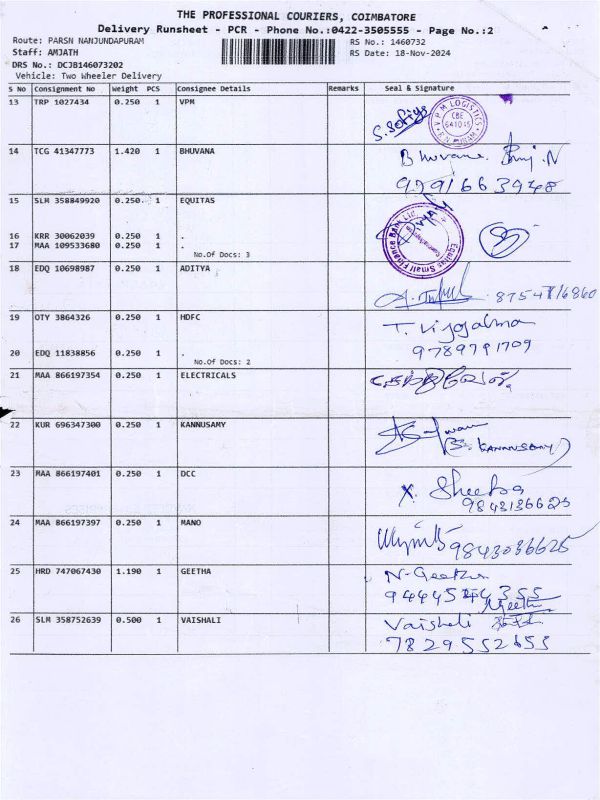 THE PROFESSIONAL COURIERS, COIMBATORE
Delivery Runsheet - PCR - Phone No.:0422-3505555 - Page No.:2
Route: PARSN NANJUNDAPURAM
RS No.: 1460732
Staff: AMJATH
RS Date: 18-Nov-2024
DRS No.: DCJ8146073202
Vehicle: Two Wheeler Delivery
S No Consignment No Weight PCS Consignee Details Remarks Seal & Signature
13 TRP 1027434 0.250 1 VPM
S. Sofiya
VPM LOGISTICS
CBE
641045
14 TCG 41347773 1.420 1 BHUVANA
Bhuvana. N
9791663948
15 SLM 358849920 0.250 1 EQUITAS
Equitas Small Finance Bank Ltd.
16 KRR 30062039 0.250 1 .
17 MAA 109533680 0.250 1 .
No.Of Docs: 3
18 EDQ 10698987 0.250 1 ADITYA
19 OTY 3864326 0.250 1 HDFC
T. Vijayalarma
9789791709
20 EDQ 11838856 0.250 1 .
No.Of Docs: 2
21 MAA 866197354 0.250 1 ELECTRICALS
22 KUR 696347300 0.250 1 KANNUSAMY
(S. KANNUSAMY)
23 MAA 866197401 0.250 1 DCC
X. Sheeba
9843136625
24 MAA 866197397 0.250 1 MANO
9843036625
25 HRD 747067430 1.190 1 GEETHA
N-Geetha
26 SLM 358752639 0.500 1 VAISHALI
Vaishali
7829552653